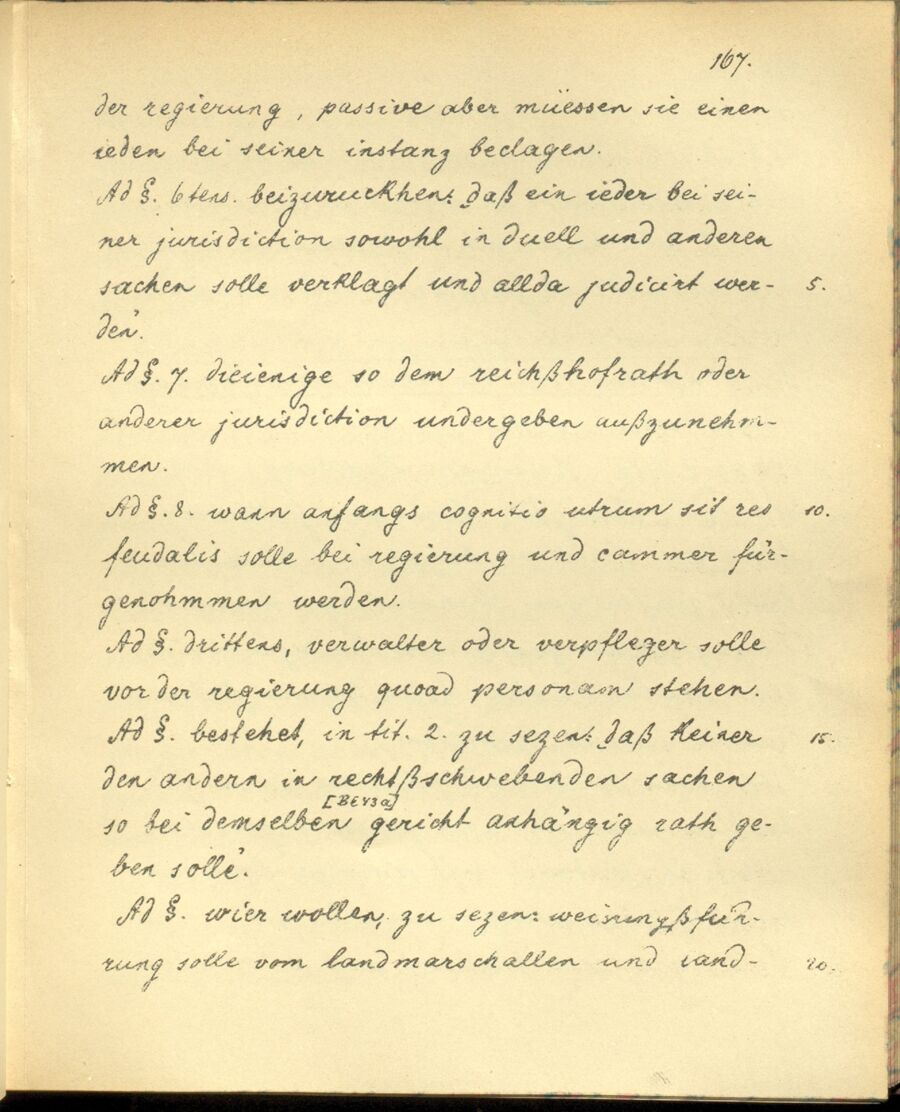 167.
der regierung, passive aber müessen sie einen
ieden bei seiner instanz beclagen.
Ad §. 6tens. beizuruckhen: „daß ein ieder bei sei-
ner jurisdiction sowohl in duell und anderen
sachen solle verklagt und allda judicirt wer- 5.
den“.
Ad §. 7. dieienige so dem reichßhofrath oder
anderer jurisdiction undergeben außzunehm-
men.
Ad §. 8. wann anfangs cognitio utrum sit res 10.
feudalis solle bei regierung und cammer für-
genohmmen werden.
Ad §. drittens, verwalter oder verpfleger solle
vor der regierung quoad personam stehen.
Ad §. bestehet, in tit. 2. zu sezen: „daß keiner 15.
den andern in rechtßschwebenden sachen
[Bl 43a]
so bei demselben gericht anhängig rath ge-
ben solle“.
Ad §. wier wollen, zu sezen: weisungßfüh-
rung solle vom landmarschallen und land- 20.